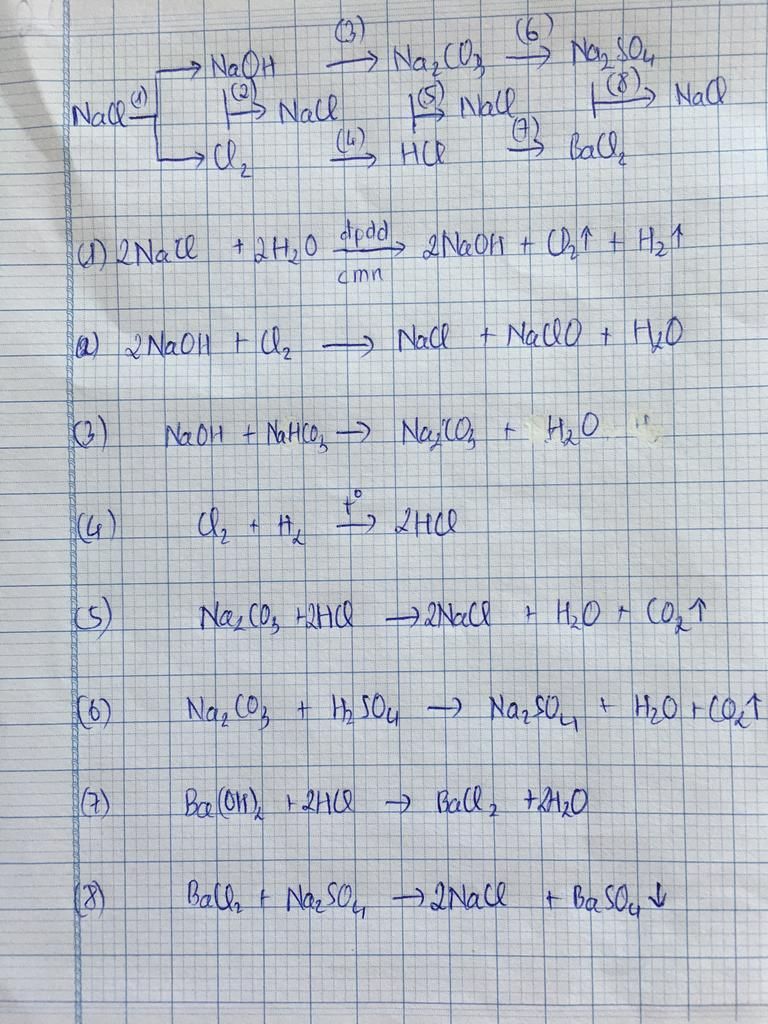 NaOH (3)→ Na₂CO₃ (6)→ Na₂SO₄
NaCl (1) (2)→ NaCl (5)→ NaCl (8)→ NaCl
Cl₂ (4)→ HCl (7)→ BaCl₂
(1) 2NaCl + 2H₂O đpdd→cmn 2NaOH + Cl₂↑ + H₂↑
(2) 2NaOH + Cl₂ → NaCl + NaClO + H₂O
(3) NaOH + NaHCO₃ → Na₂CO₃ + H₂O
(4) Cl₂ + H₂ t°→ 2HCl
(5) Na₂CO₃ + 2HCl → 2NaCl + H₂O + CO₂↑
(6) Na₂CO₃ + H₂SO₄ → Na₂SO₄ + H₂O + CO₂↑
(7) Ba(OH)₂ + 2HCl → BaCl₂ + 2H₂O
(8) BaCl₂ + Na₂SO₄ → 2NaCl + BaSO₄↓